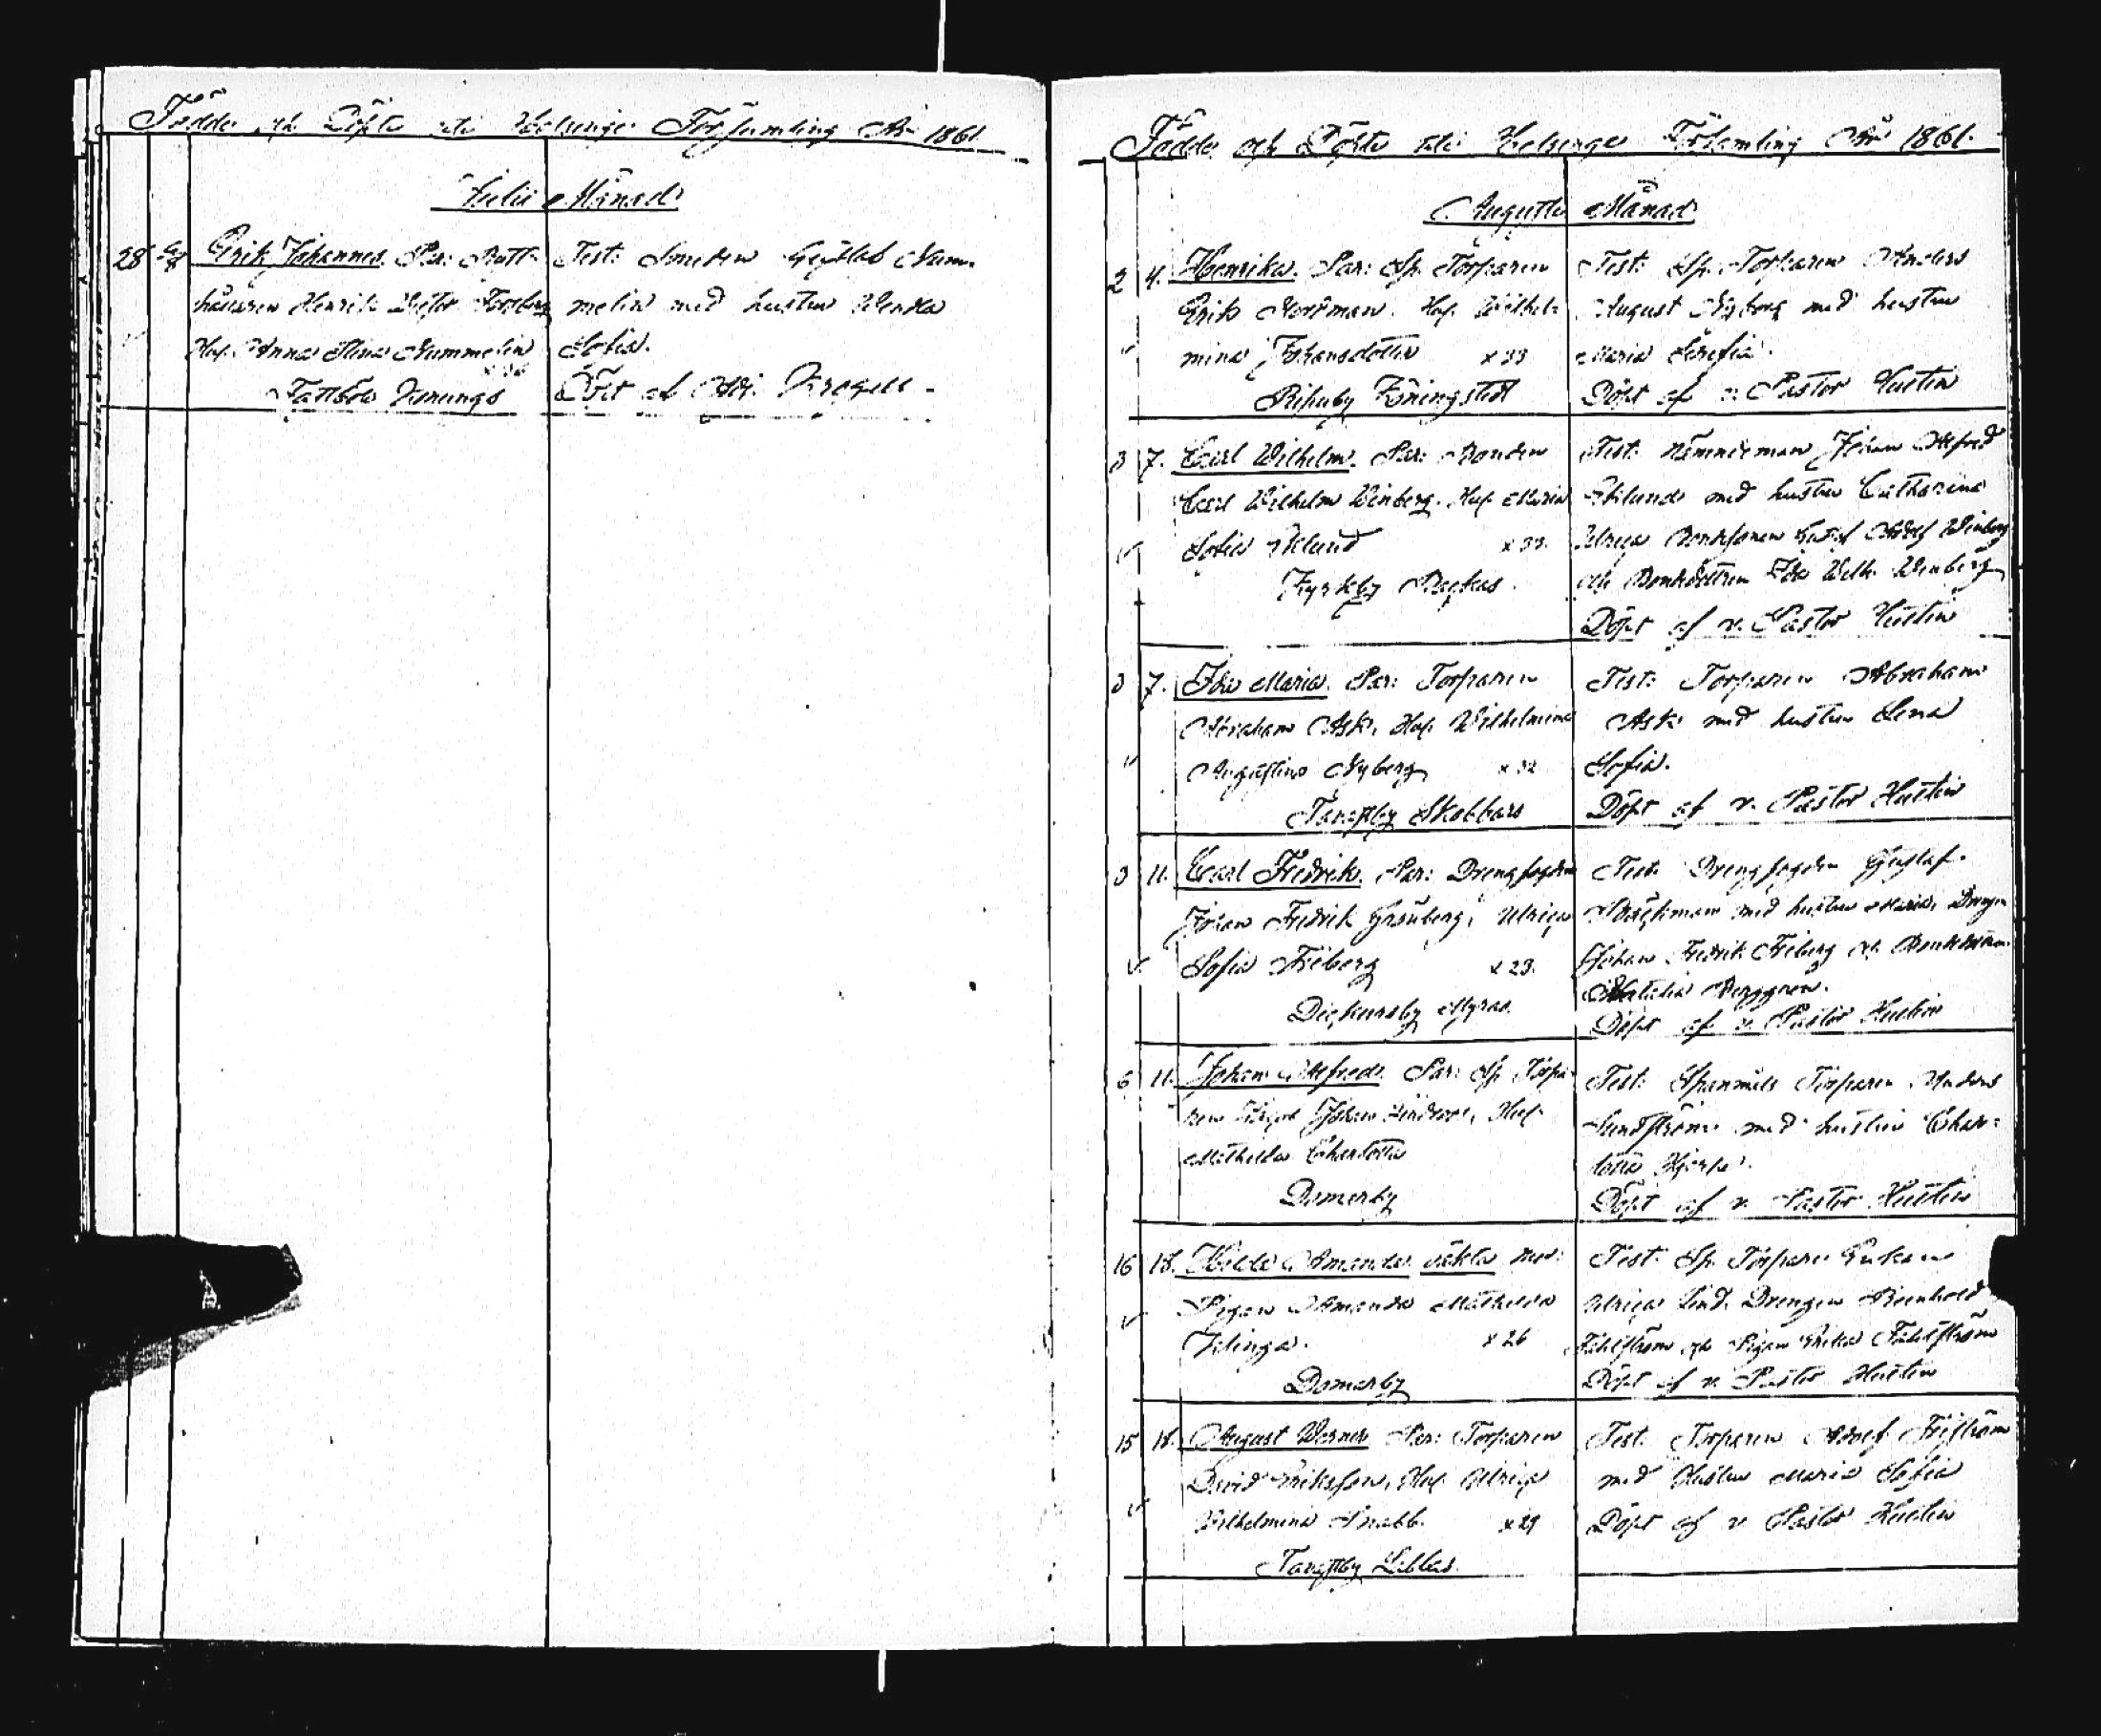 Födde och Döpte uti Helsinge Församling År 1861.
Julii Månad
28 4/8 Erik Johannes. Par: Ratt-
hållaren Henrik Forsberg
Hus. Anna Stina Nummelin
x 36
Fastböle
Test: Smeden Gustaf Num-
melin med hustru Wendla
Sofia.
Döpt af Adj. Krogell.
Födde och Döpte uti Helsinge Församling År 1861.
Augusti Månad
2 4. Henrika. Par: Sp. Torparen
Erik Norrman. Hus. Wilhel-
mina Johansdotter x 33
Ripuby Königstedt
Test: Sp. Torparen Anders
August Nyberg med hustru
Maria Serafia.
Döpt af v. Pastor Hustin
3 7. Carl Wilhelm. Par: Bonden
Carl Wilhelm Winberg. Hus. Maria
Sofia Eklund x 33.
Kyrkby Backas.
Test: Nämndeman Johan Alfred
Eklund med hustru Catharina
Ulrica Bondsonen Gustaf Adolf Winberg
och Bonddottren Ida Wilh. Winberg
Döpt af v. Pastor Hustin
3 7. Ida Maria. Par: Torparen
Abraham Ask, Hus. Wilhelmina
Augustina Nyberg x 32
Tavastby Skobbars
Test: Torparen Abraham
Ask med hustru Lena
Sofia.
Döpt af v. Pastor Hustin
3 11. Carl Fredrik. Par: Drengfogden
Johan Fredrik Grönberg, Ulrica
Sofia Friberg x 23.
Dickursby Myras.
Test: Drengfogden Gustaf
med hustru Maria, Drengen
Johan Fredrik Friberg och Bonddottren
Natalia Berggren.
Döpt af v. Pastor Hustin
6 11. Johan Alfred. Par: Sp. Torpa-
ren Johan Lindroos, Hus.
Mathilda Charlotta
Domarby
Test: Spanmåls Torparen Anders
Sundström med hustru Char-
lotta
Döpt af v. Pastor Hustin
16 18. Hilda Amanda oäkta mod:
Pigan Amanda Mathilda
x 26
Domarby
Test: Sp. Torpare Enkan
Ulrica Lind. Drengen Reinhold
Fahlström och Pigan Erika Fahlström
Döpt af v. Pastor Hustin
15 18. August Werner Par: Torparen
David Eriksson, Hus. Ulrica
Wilhelmina Snabb. x 29
Tavastby Labbas.
Test: Torparen Adolf Friström
med Hustru Maria Sofia
Döpt af v. Pastor Hustin